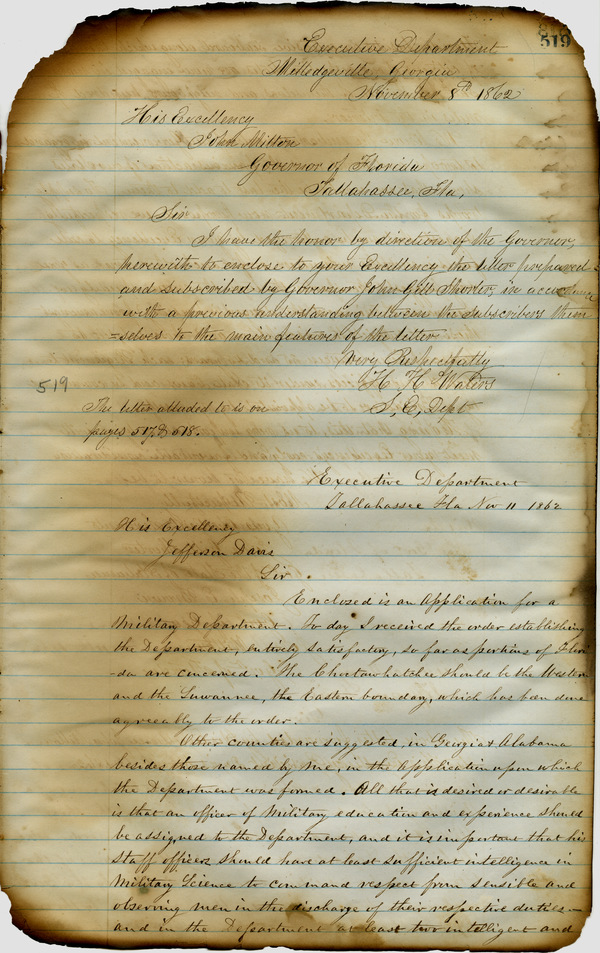 519
Executive Department
Milledgeville, Georgia
November 8th 1862
His Excellency
John Milton
Governor of Florida
Tallahassee, Fla,
Sir
I have the honor by direction of the Governor,
herewith to enclose to your Excellency the letter prepared
and subscribed by Governor John Gill Shorter, in accordance
with a previous understanding between the subscribers them
=selves to the main features of the letter
Very Respectfully
H. H. Waters
S, E, Dept
519
The letter alluded to is on
pages 517, & 518.
Executive Department
Tallahassee Fla Nov 11 1862
His Excellency
Jefferson Davis
Sir
Enclosed is an Application for a
Military Department. To day I received the order establishing
the Department, entirely satisfactory, so far as portions of Flori
-da are concerned. The Choctawhatchee should be the Western
and the Suwannee, the Eastern boundary, which has been done
agreeably to the order.
Other counties are suggested, in Georgia & Alabama
besides those named by me, in the Application upon which
the Department was formed. All that is desired or desirable
is that an officer of Military education and experience should
be assigned to the Department, and it is important that his
staff officers should have at least sufficient intelligence in
Military Science to command respect from sensible and
observing men in the discharge of their respective duties—
and in the Department at least two intelligent and